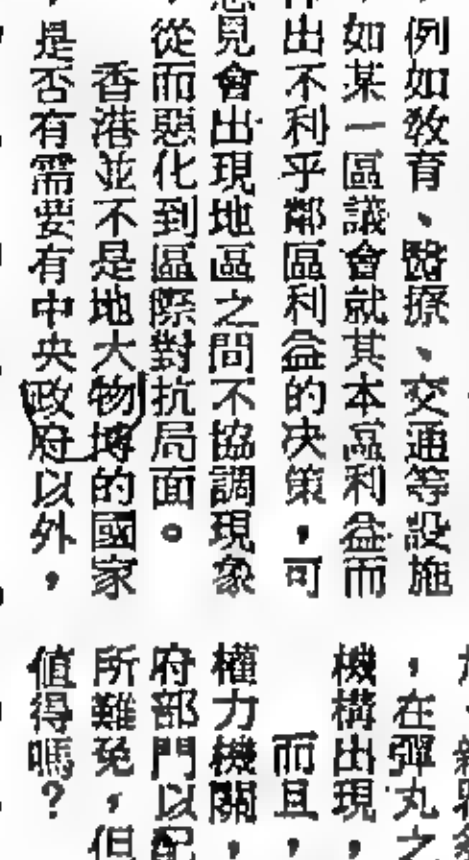 例如教育、醫療、交通等設施
如某一區議會就其本區利益而
出不利乎鄰區利益的决策，可
見會出現地區之間不協調現象
從而惡化到區際對抗局面。
香港並不是地大物博的國家
是否有需要有中央政府以外，
，在彈丸之
機構出現，
而且，
權力機關，
府部門以配
所難免，但
值得嗎？